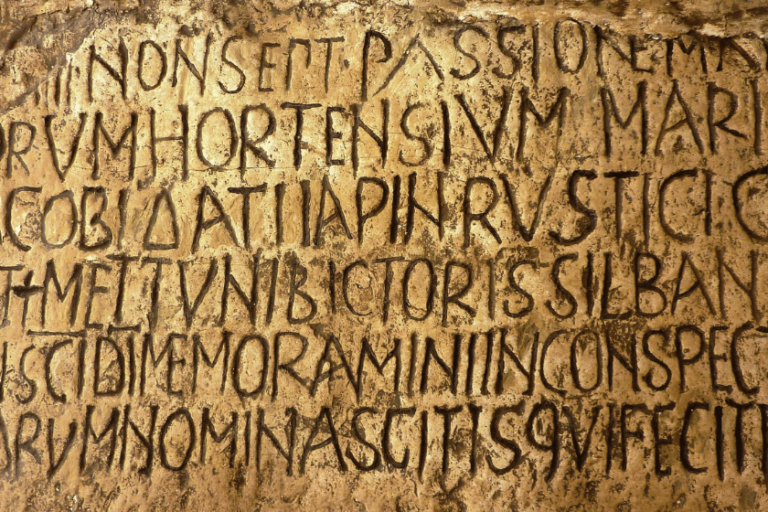 IIII NONSEPT·PASSIONEMAR
ORVMHORTENSIVM MARI
ACOBIDATIIAPINRVSTICIC
METTVNIBICTORISSILBAN
SCIDIMEMORAMINIINCONSPEC
ORVMNOMINASCITISQVIFECIT